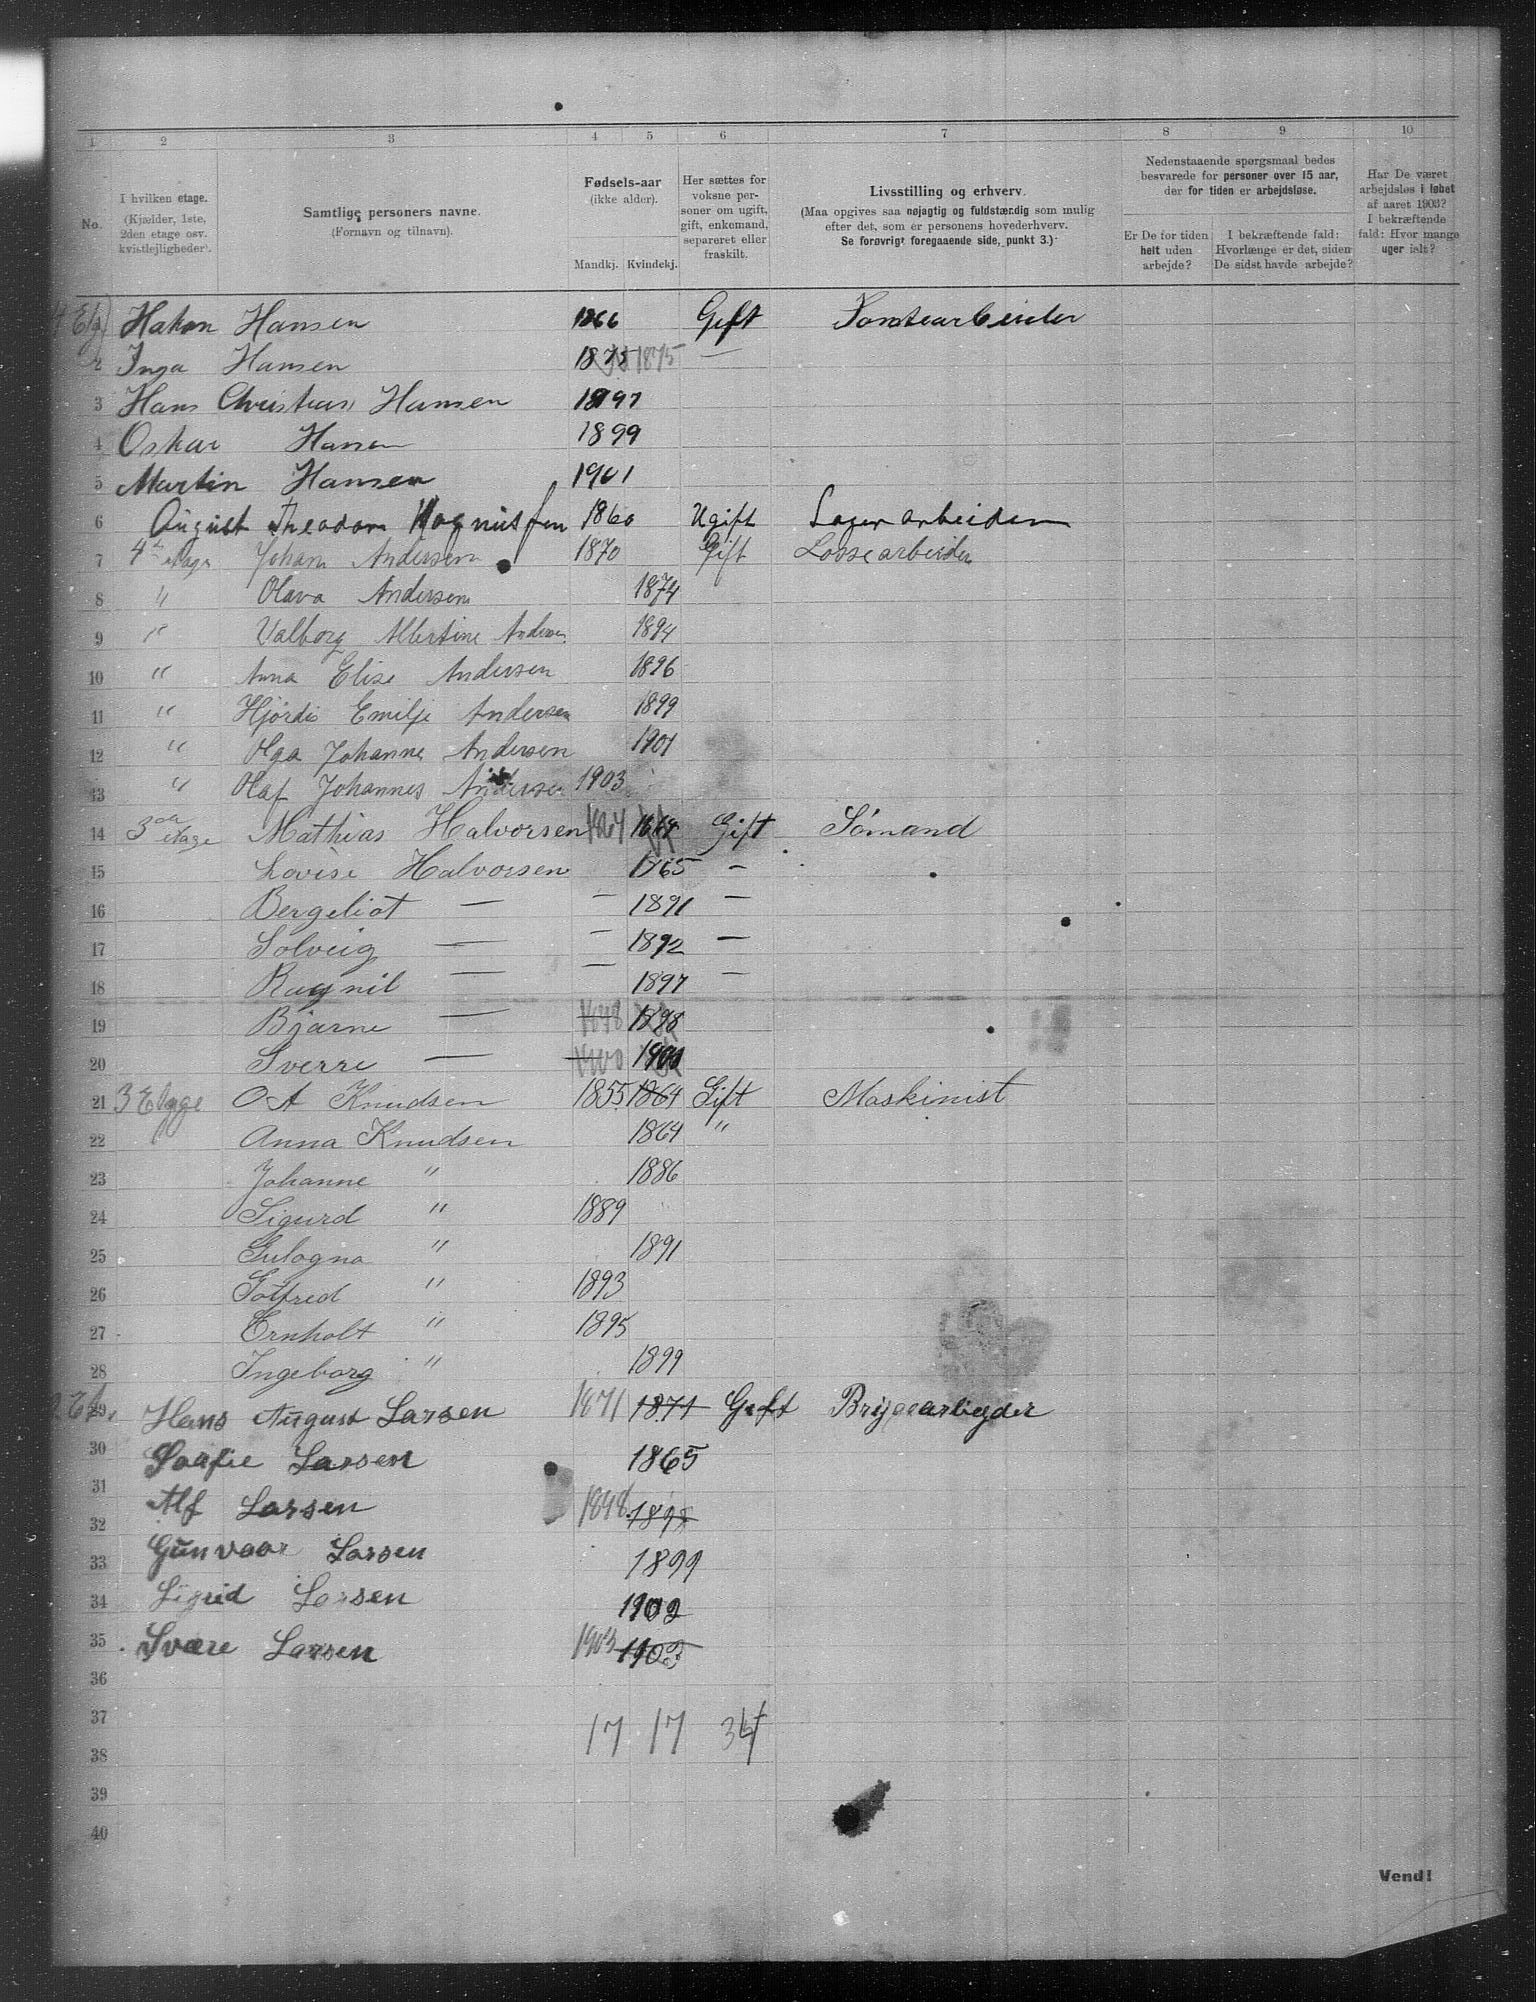 1 2 3 4 5 6 7 8 9 10
No.
I hvilken etage.
(Kjælder, 1ste,
2den etage osv.
kvistlejligheder).
Samtlige personers navne.
(Fornavn og tilnavn).
Fødsels-aar
(ikke alder).
Mandkj. Kvindekj.
Her sættes for
voksne per-
soner om ugift,
gift, enkemand,
separeret eller
fraskilt.
Livsstilling og erhverv.
(Maa opgives saa nøjagtig og fuldstændig som mulig
efter det, som er personens hovederhverv.
Se forøvrigt foregaaende side, punkt 3.)
Nedenstaaende spørgsmaal bedes
besvarede for personer over 15 aar,
der for tiden er arbejdsløse.
Er De for tiden
helt uden
arbejde?
I bekræftende fald:
Hvorlænge er det, siden
De sidst havde arbejde?
Har De været
arbejdsløs i løbet
af aaret 1903?
I bekræftende
fald: Hvor mange
uger ialt?
Hakon Hansen 1866 Gift
2 Inga Hansen 1875 1875 —
3 Hans Christian Hansen 1897
4 Oskar Hansen 1899
5 Martin Hansen 1901
6 August Theodor Magnussen 1860 Ugift Lagerarbeider
7 4de etage Johan Andersen 1870 Gift Lossearbeider
8 " Olava Andersen 1874
9 " Valborg Albertine Andersen 1894
10 " Anna Elise Andersen 1896
11 " Hjördis Emilje Andersen 1899
12 " Olga Johanne Andersen 1901
13 " Olaf Johannes Andersen 1903
14 3die etage Mathias Halvorsen Gift Sömand
15 Lovise Halvorsen 1865 —
16 Bergeliot — — 1891 —
17 Solveig — — 1892 —
18 Ragnil — — 1897 —
19 Bjarne — 1898 1898
20 Sverre — 1900 1900
21 3 Etage O A Knudsen 1855 1864 Gift Maskinist
22 Anna Knudsen 1864 "
23 Johanne " 1886
24 Sigurd " 1889
25 Gulogna " 1891
26 Gotfred " 1893
27 Ernholt " 1895
28 Ingeborg " 1899
29 2 Et. Hans August Larsen 1871 1871 Gift Bryggearbeyder
30 Soofie Larsen 1865
31 Alf Larsen 1898 1898
32 Gunvaar Larsen 1899
33 Sigrid Larsen 1902
34 Svære Larsen 1903 1903
35
36
37 17 17 34
38
39
40
Vend!